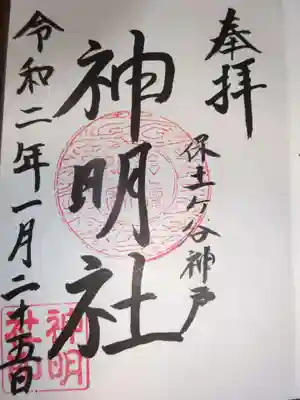 奉拝
保土ヶ谷神戸
神明社
令和二年一月二十五日
神明
社印